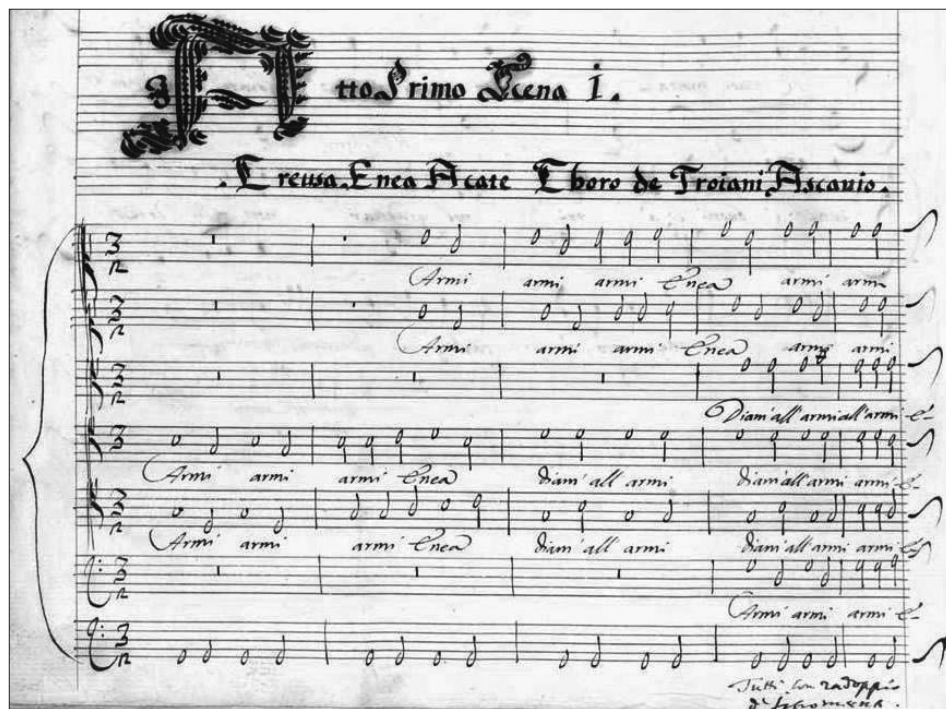 Atto Primo Scena I.
Creusa, Enea Acate Choro de Troiani, Ascanio.
3
2
Armi armi armi Enea armi armi
3
2
Armi armi armi Enea armi armi
3
2
Diam' all' armi all' armi E-
3
2
Armi armi armi Enea diam' all' armi diam' all' armi armi E-
3
2
Armi armi armi Enea diam' all' armi diam' all' armi armi E-
3
2
Armi armi armi E-
3
2
Tutti con radoppio